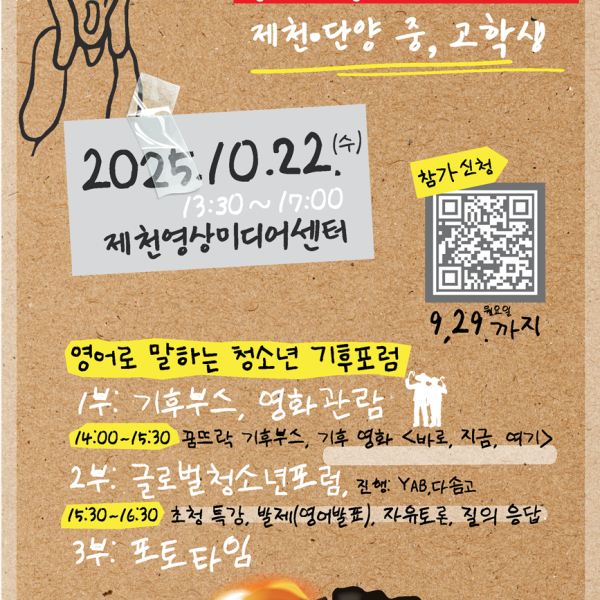 제천·단양 중, 고학생
2025.10.22.(수)
13:30 ~ 17:00
제천영상미디어센터
참가신청
9.29.월요일까지
영어로 말하는 청소년 기후포럼
1부: 기후부스, 영화관람
14:00~15:30 꿈뜨락 기후부스, 기후 영화 <바로, 지금, 여기>
2부: 글로벌청소년포럼, 진행: YAB,다솜고
15:30~16:30 초청 특강, 발제(영어발표), 자유토론, 질의 응답
3부: 포토타임